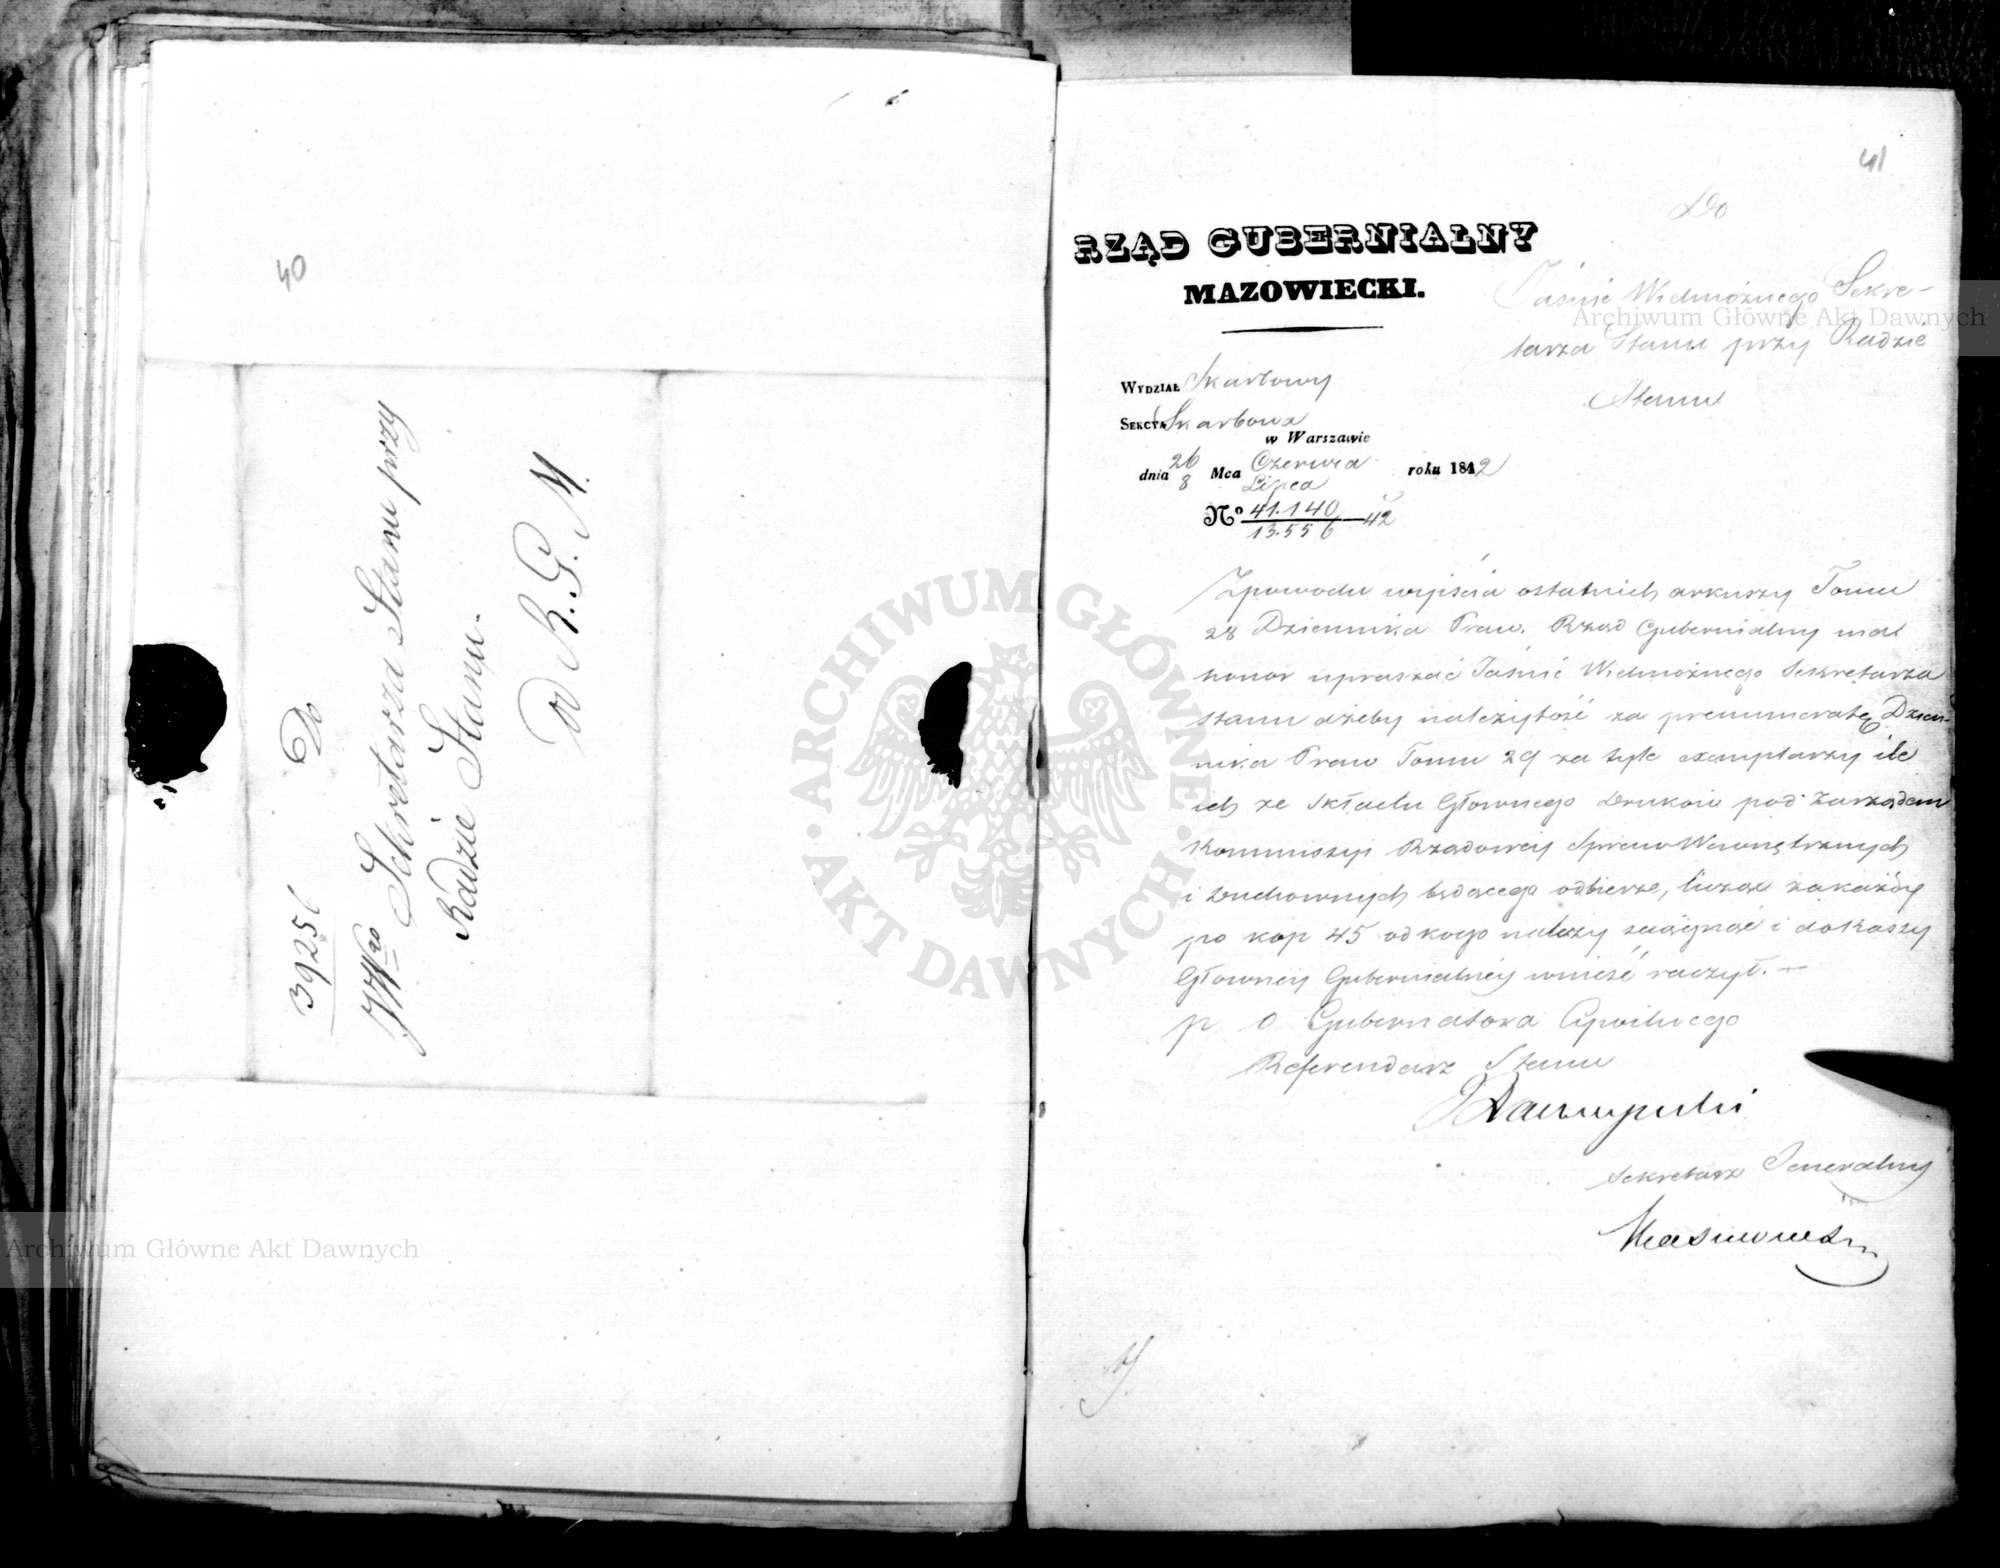 40
39256
Do
JWgo Sekretarza Stanu przy
Radzie Stanu.
od R. G. M.
41
Do
RZĄD GUBERNIALNY
MAZOWIECKI.
Jaśnie Wielmożnego Sekre-
tarza Stanu przy Radzie
Stanu
WYDZIAŁ Skarbowy
SEKCYA Skarbowa
w Warszawie
dnia 26/8 Mca Czerwca/Lipca roku 1842
No 41.140/13.556 — 42
Zpowodu wyjścia ostatnich arkuszy Tomu
28 Dziennika Praw. Rząd Gubernialny ma
honor upraszać Jaśnie Wielmożnego Sekretarza
Stanu ażeby należytość za prenumeratę Dzien-
nika Praw Tomu 29 za tyle exemplarzy ile
ich ze Składu Głownego Druków pod Zarządem
Kommissyi Rządowey Spraw Wewnętrznych
i Duchownych będącego odbierze, licząc zakażdy
po kop 45 od kogo należy ściągnąć i do Kassy
Głowney Gubernialney wnieść raczył. —
p o Gubernatora Cywilnego
Referendarz Stanu
Sekretarz Jeneralny
Archiwum Główne Akt Dawnych
Archiwum Główne Akt Dawnych
ARCHIWUM GŁÓWNE · AKT DAWNYCH ·